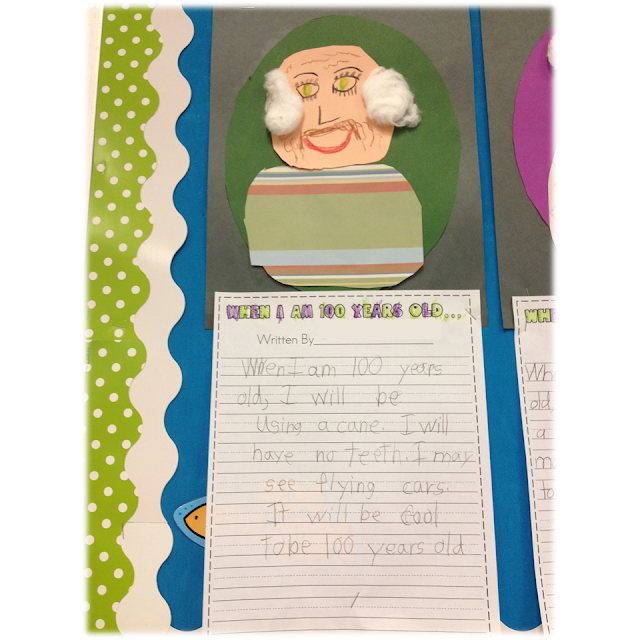 WHEN I AM 100 YEARS OLD....
Written By
When I am 100 years
old, I will be
Using a cane. I will
have no teeth. I may
see flying cars.
It will be cool
to be 100 years old
WHE
Wh
old
a